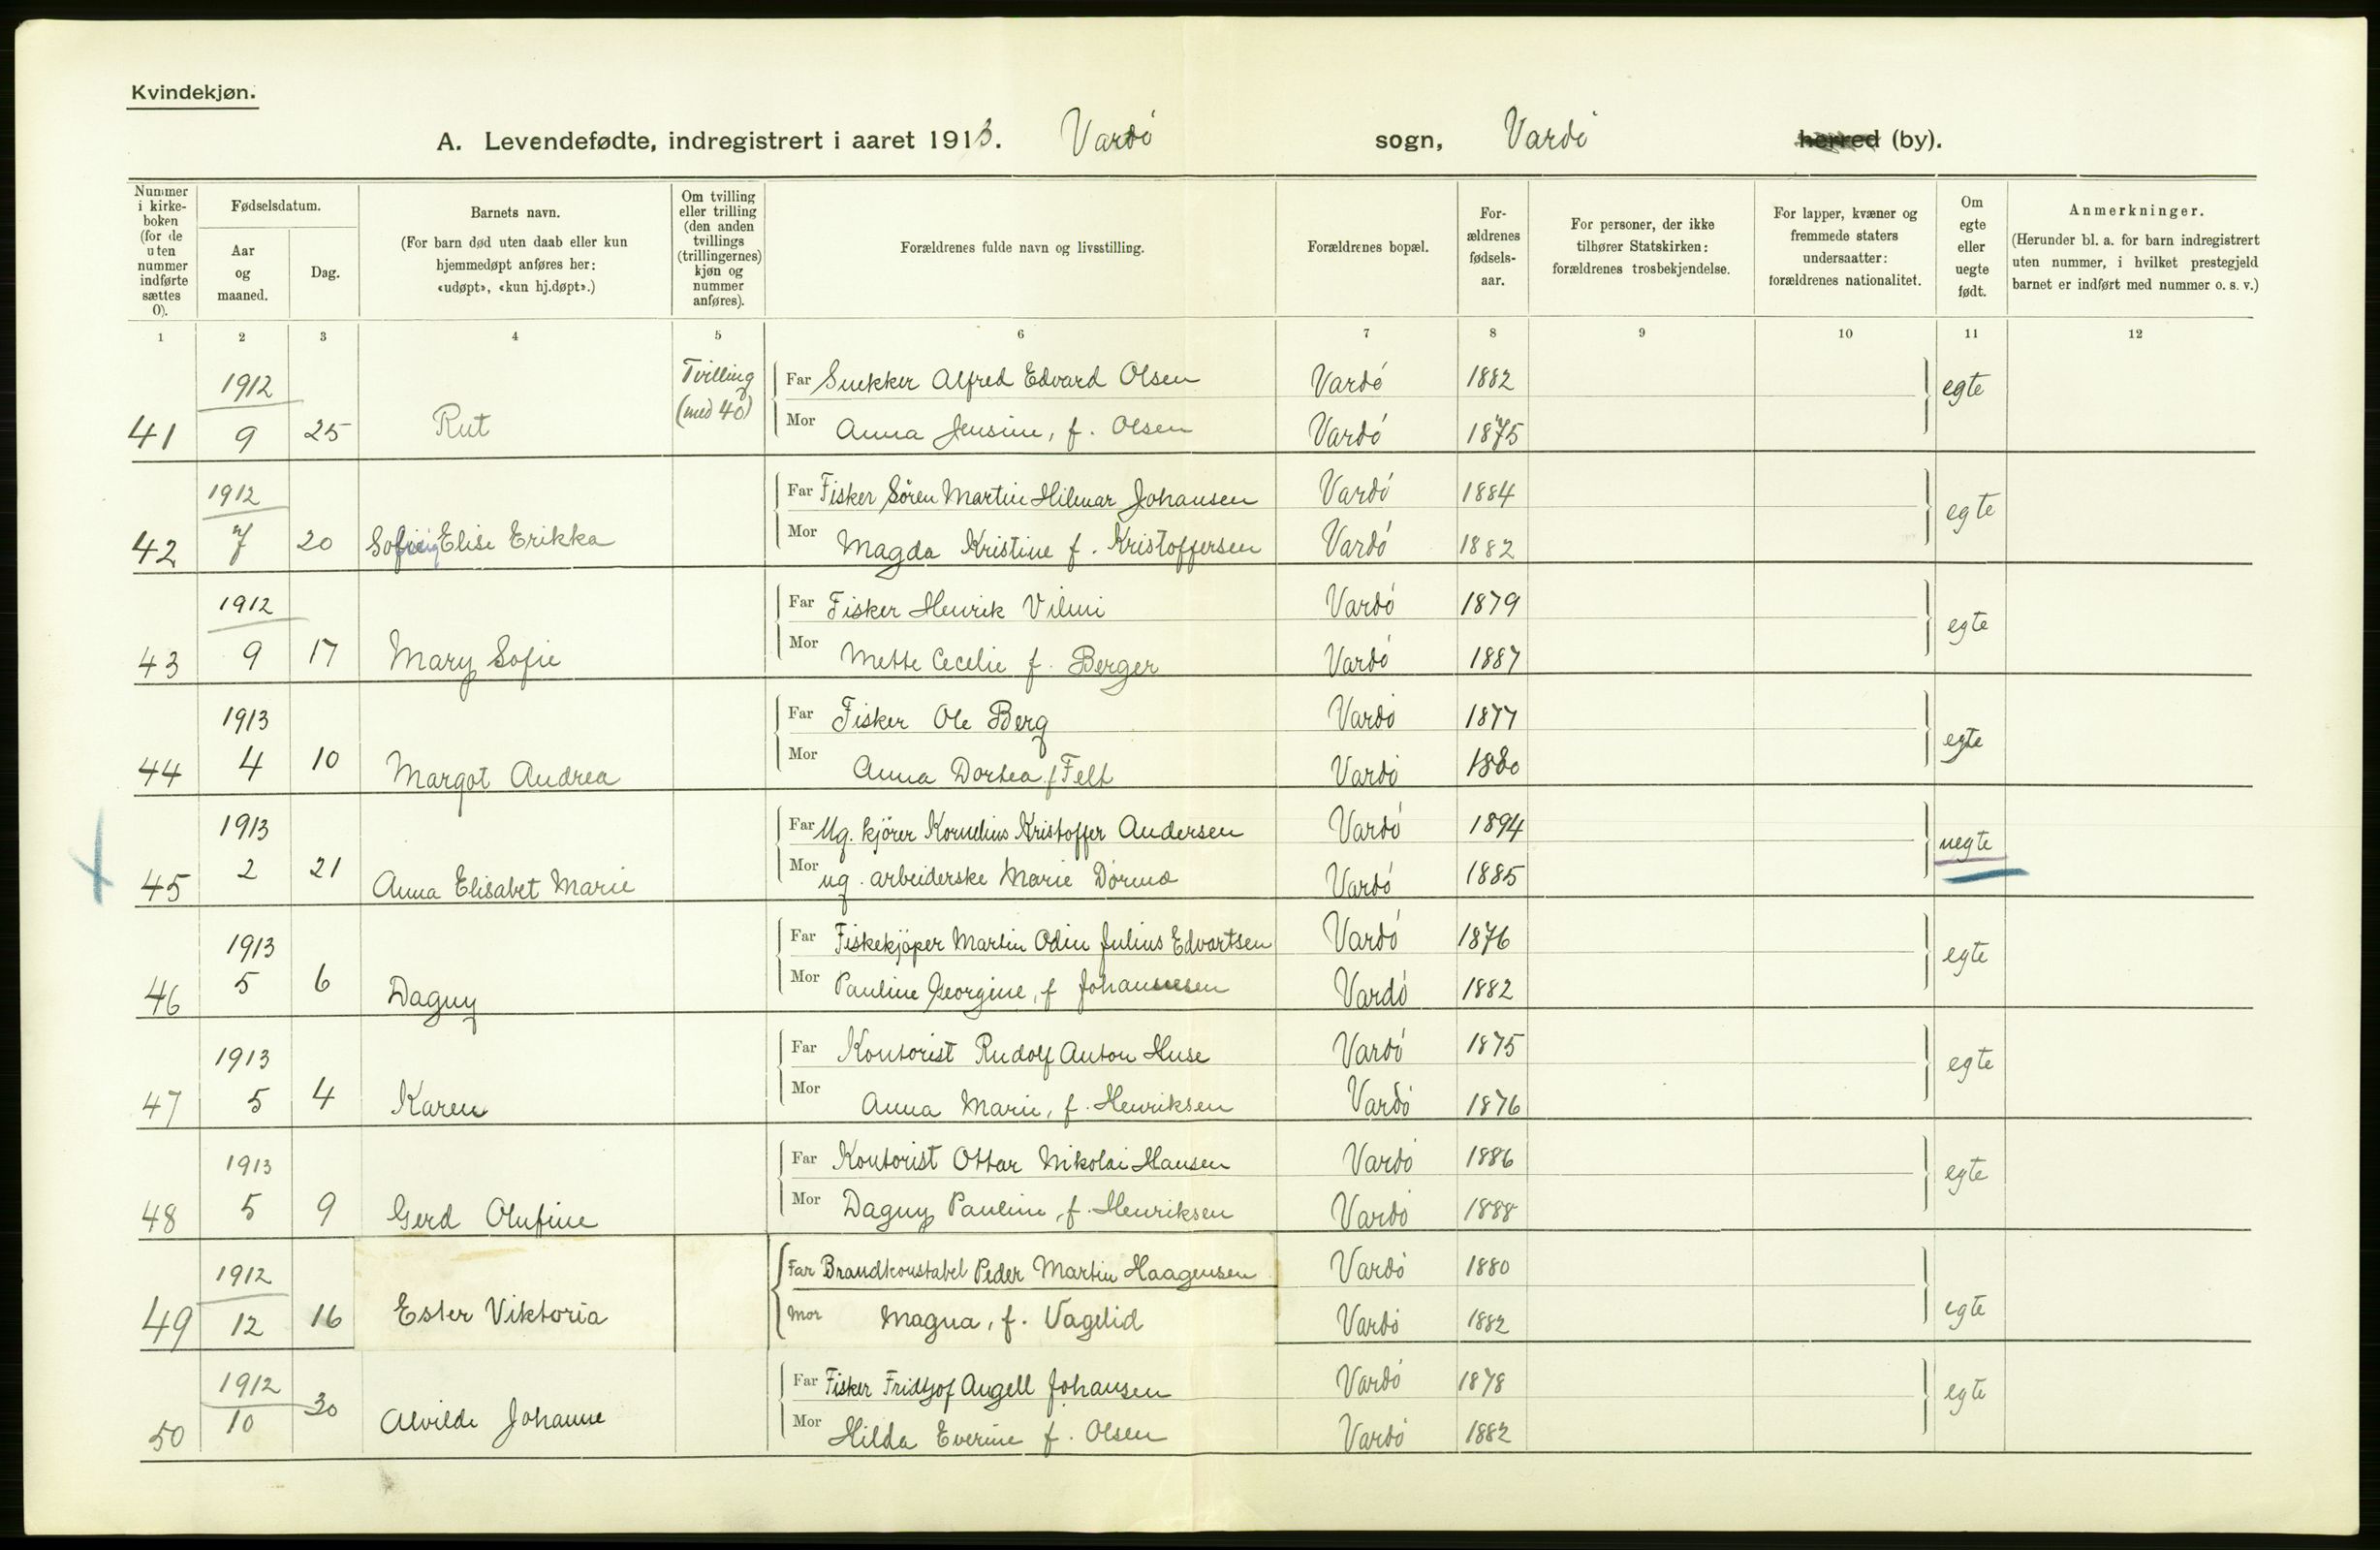 Kvindekjøn.
A. Levendefødte, indregistrert i aaret 1913. Vardö sogn, Vardö herred (by).
Nummer i kirke-boken (for de uten nummer indførte sættes 0).
Fødselsdatum.
Aar og maaned.
Dag.
Barnets navn.
(For barn død uten daab eller kun hjemmedøpt anføres her: «udøpt», «kun hj.døpt».)
Om tvilling eller trilling (den anden tvillings (trillingernes) kjøn og nummer anføres).
Forældrenes fulde navn og livsstilling.
Forældrenes bopæl.
For-ældrenes fødsels-aar.
For personer, der ikke tilhører Statskirken: forældrenes trosbekjendelse.
For lapper, kvæner og fremmede staters undersaatter: forældrenes nationalitet.
Om egte eller uegte født.
Anmerkninger.
(Herunder bl. a. for barn indregistrert uten nummer, i hvilket prestegjeld barnet er indført med nummer o. s. v.)
1 2 3 4 5 6 7 8 9 10 11 12
1912 Tvilling (med 40) Far Snekker Alfred Edvard Olsen Vardö 1882 egte
41 9 25 Rut Mor Anna Jensine, f. Olsen Vardö 1875
1912 Far Fisker Sören Martin Hilmar Johansen Vardö 1884 egte
42 7 20 Elise Erikka Mor Magda Kristine f. Kristoffersen Vardö 1882
1912 Far Fisker Henrik Vilmi Vardö 1879 egte
43 9 17 Mary Sofie Mor Mette Cecelie f. Berger Vardö 1887
1913 Far Fisker Ole Berg Vardö 1877 egte
44 4 10 Margot Andrea Mor Anna Dortea f Felt Vardö 1880
1913 Far Ug. kjörer Kornelius Kristoffer Andersen Vardö 1894 uegte
45 2 21 Anna Elisabet Marie Mor ug. arbeiderske Marie Dörmo Vardö 1885
1913 Far Fiskekjöper Martin Odin Julius Edvartsen Vardö 1876 egte
46 5 6 Dagny Mor Pauline Georgine, f Johannesen Vardö 1882
1913 Far Kontorist Rudolf Anton Huse Vardö 1875 egte
47 5 4 Karen Mor Anna Marie, f. Henriksen Vardö 1876
1913 Far Kontorist Ottar Nikolai Hansen Vardö 1886 egte
48 5 9 Gerd Olufine Mor Dagny Pauline, f. Henriksen Vardö 1888
1912 Far Brandkonstabel Peder Martin Haagensen Vardö 1880 egte
49 12 16 Ester Viktoria Mor Magna, f. Vagelid Vardö 1882
1912 Far Fisker Fridtjof Angell Johansen Vardö 1878 egte
50 10 30 Alvilde Johanne Mor Hilda Everine f. Olsen Vardö 1882